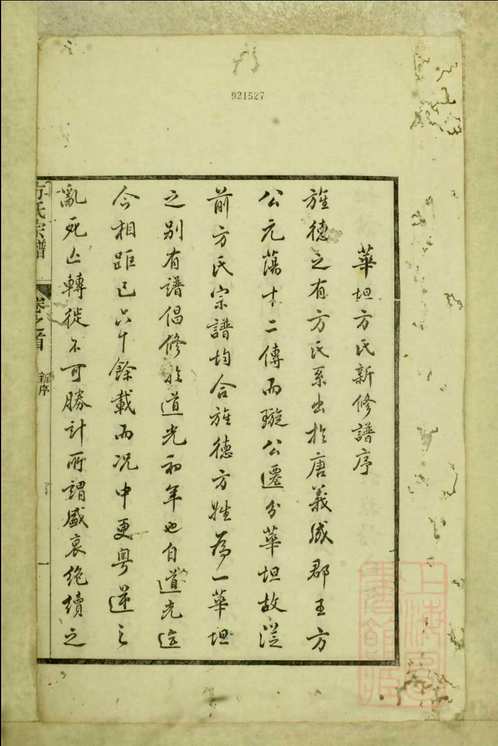 921527
華坦方氏新修譜序
旌德之有方氏系出於唐義威郡王方
公元蕩十二傳而璇公遷分華坦故從
前方氏宗譜均合旌德方姓為一華坦
之別有譜倡修於道光初年也自道光迄
今相距已六十餘載而況中更粵逆之
亂死亡轉徙不可勝計所謂盛衰絕續之
方氏宗譜 卷之首 新序 一
上海圖書館藏